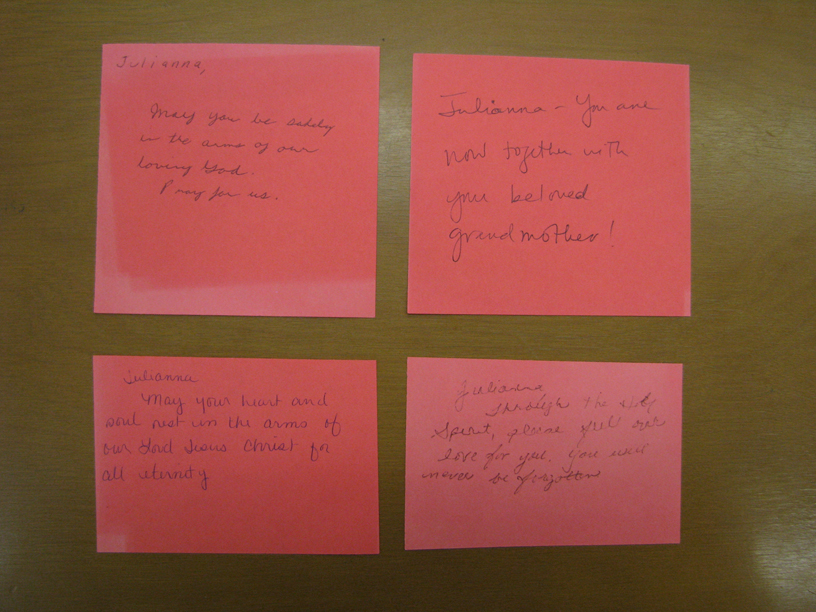 Julianna,
May you be safely
in the arms of our
loving God.
Pray for us.
Julianna - You are
now together with
your beloved
grandmother!
Julianna
May your heart and
soul rest in the arms of
our Lord Jesus Christ for
all eternity
Julianna
Through the Holy
Spirit, please feel our
love for you. You will
never be forgotten